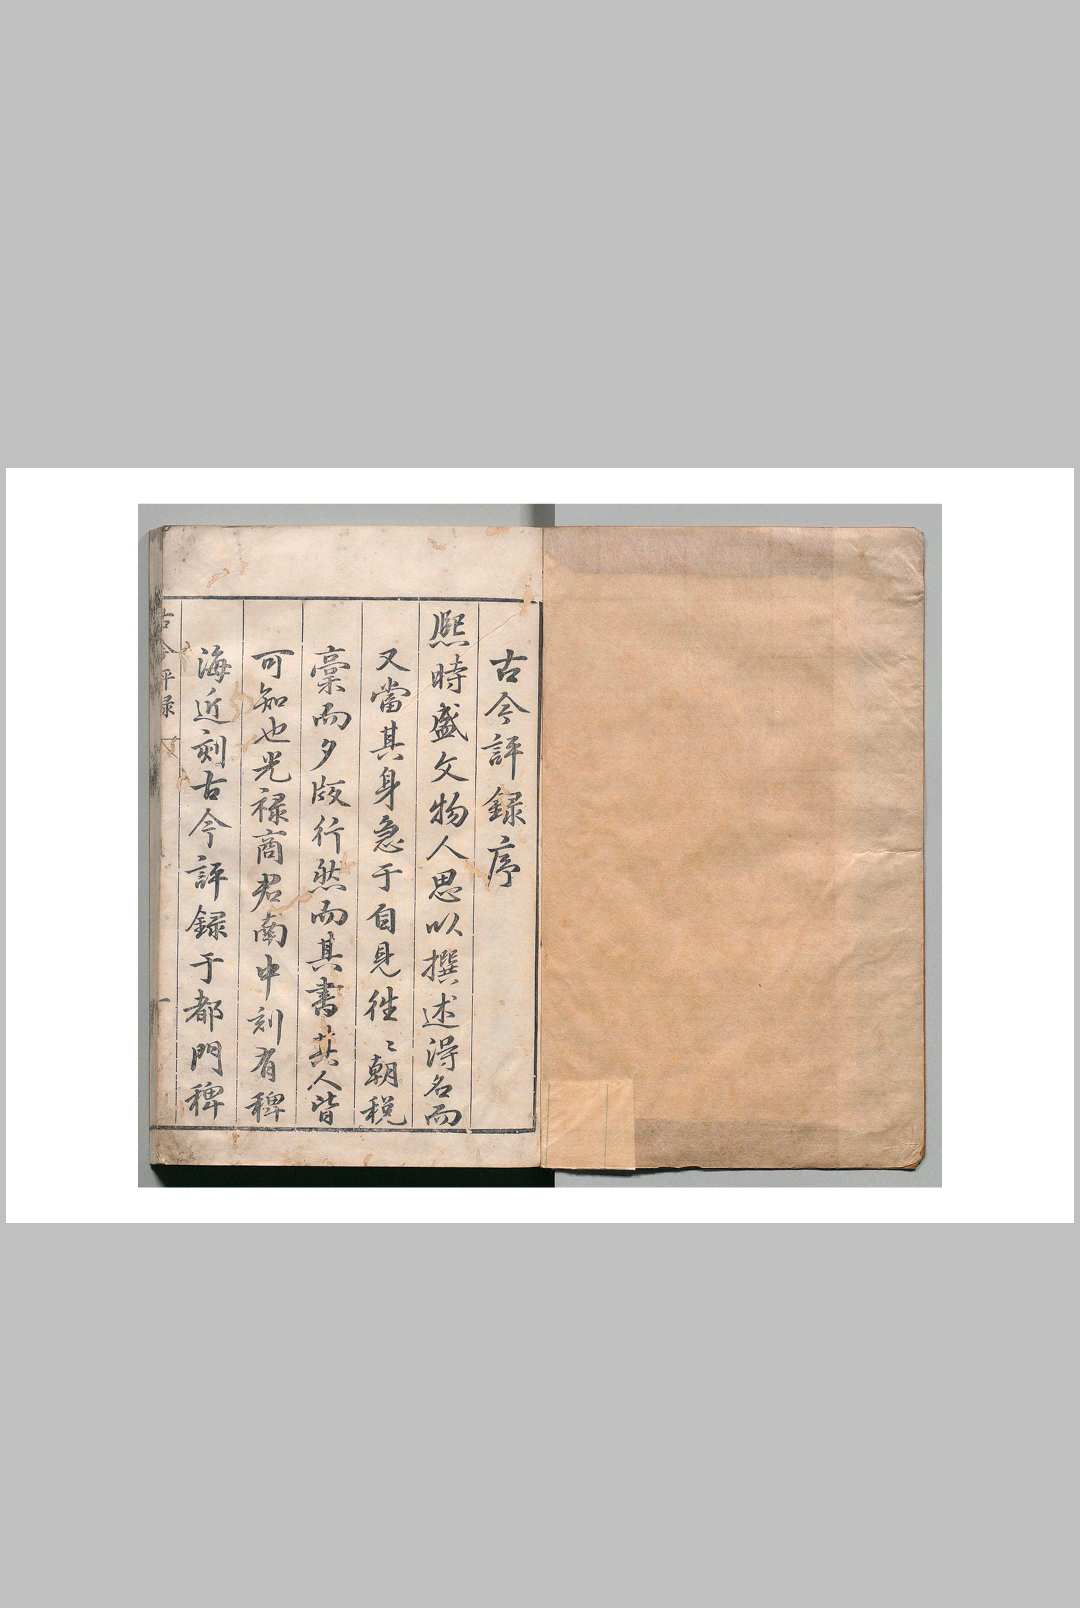 古今評錄序
熙時盛文物人思以撰述得名而
又當其身急于自見徃〻朝稅
稾而夕版行然而其書其人皆
可知也光祿商君南中刻有稗
海近刻古今評錄于都門稗
古今評錄